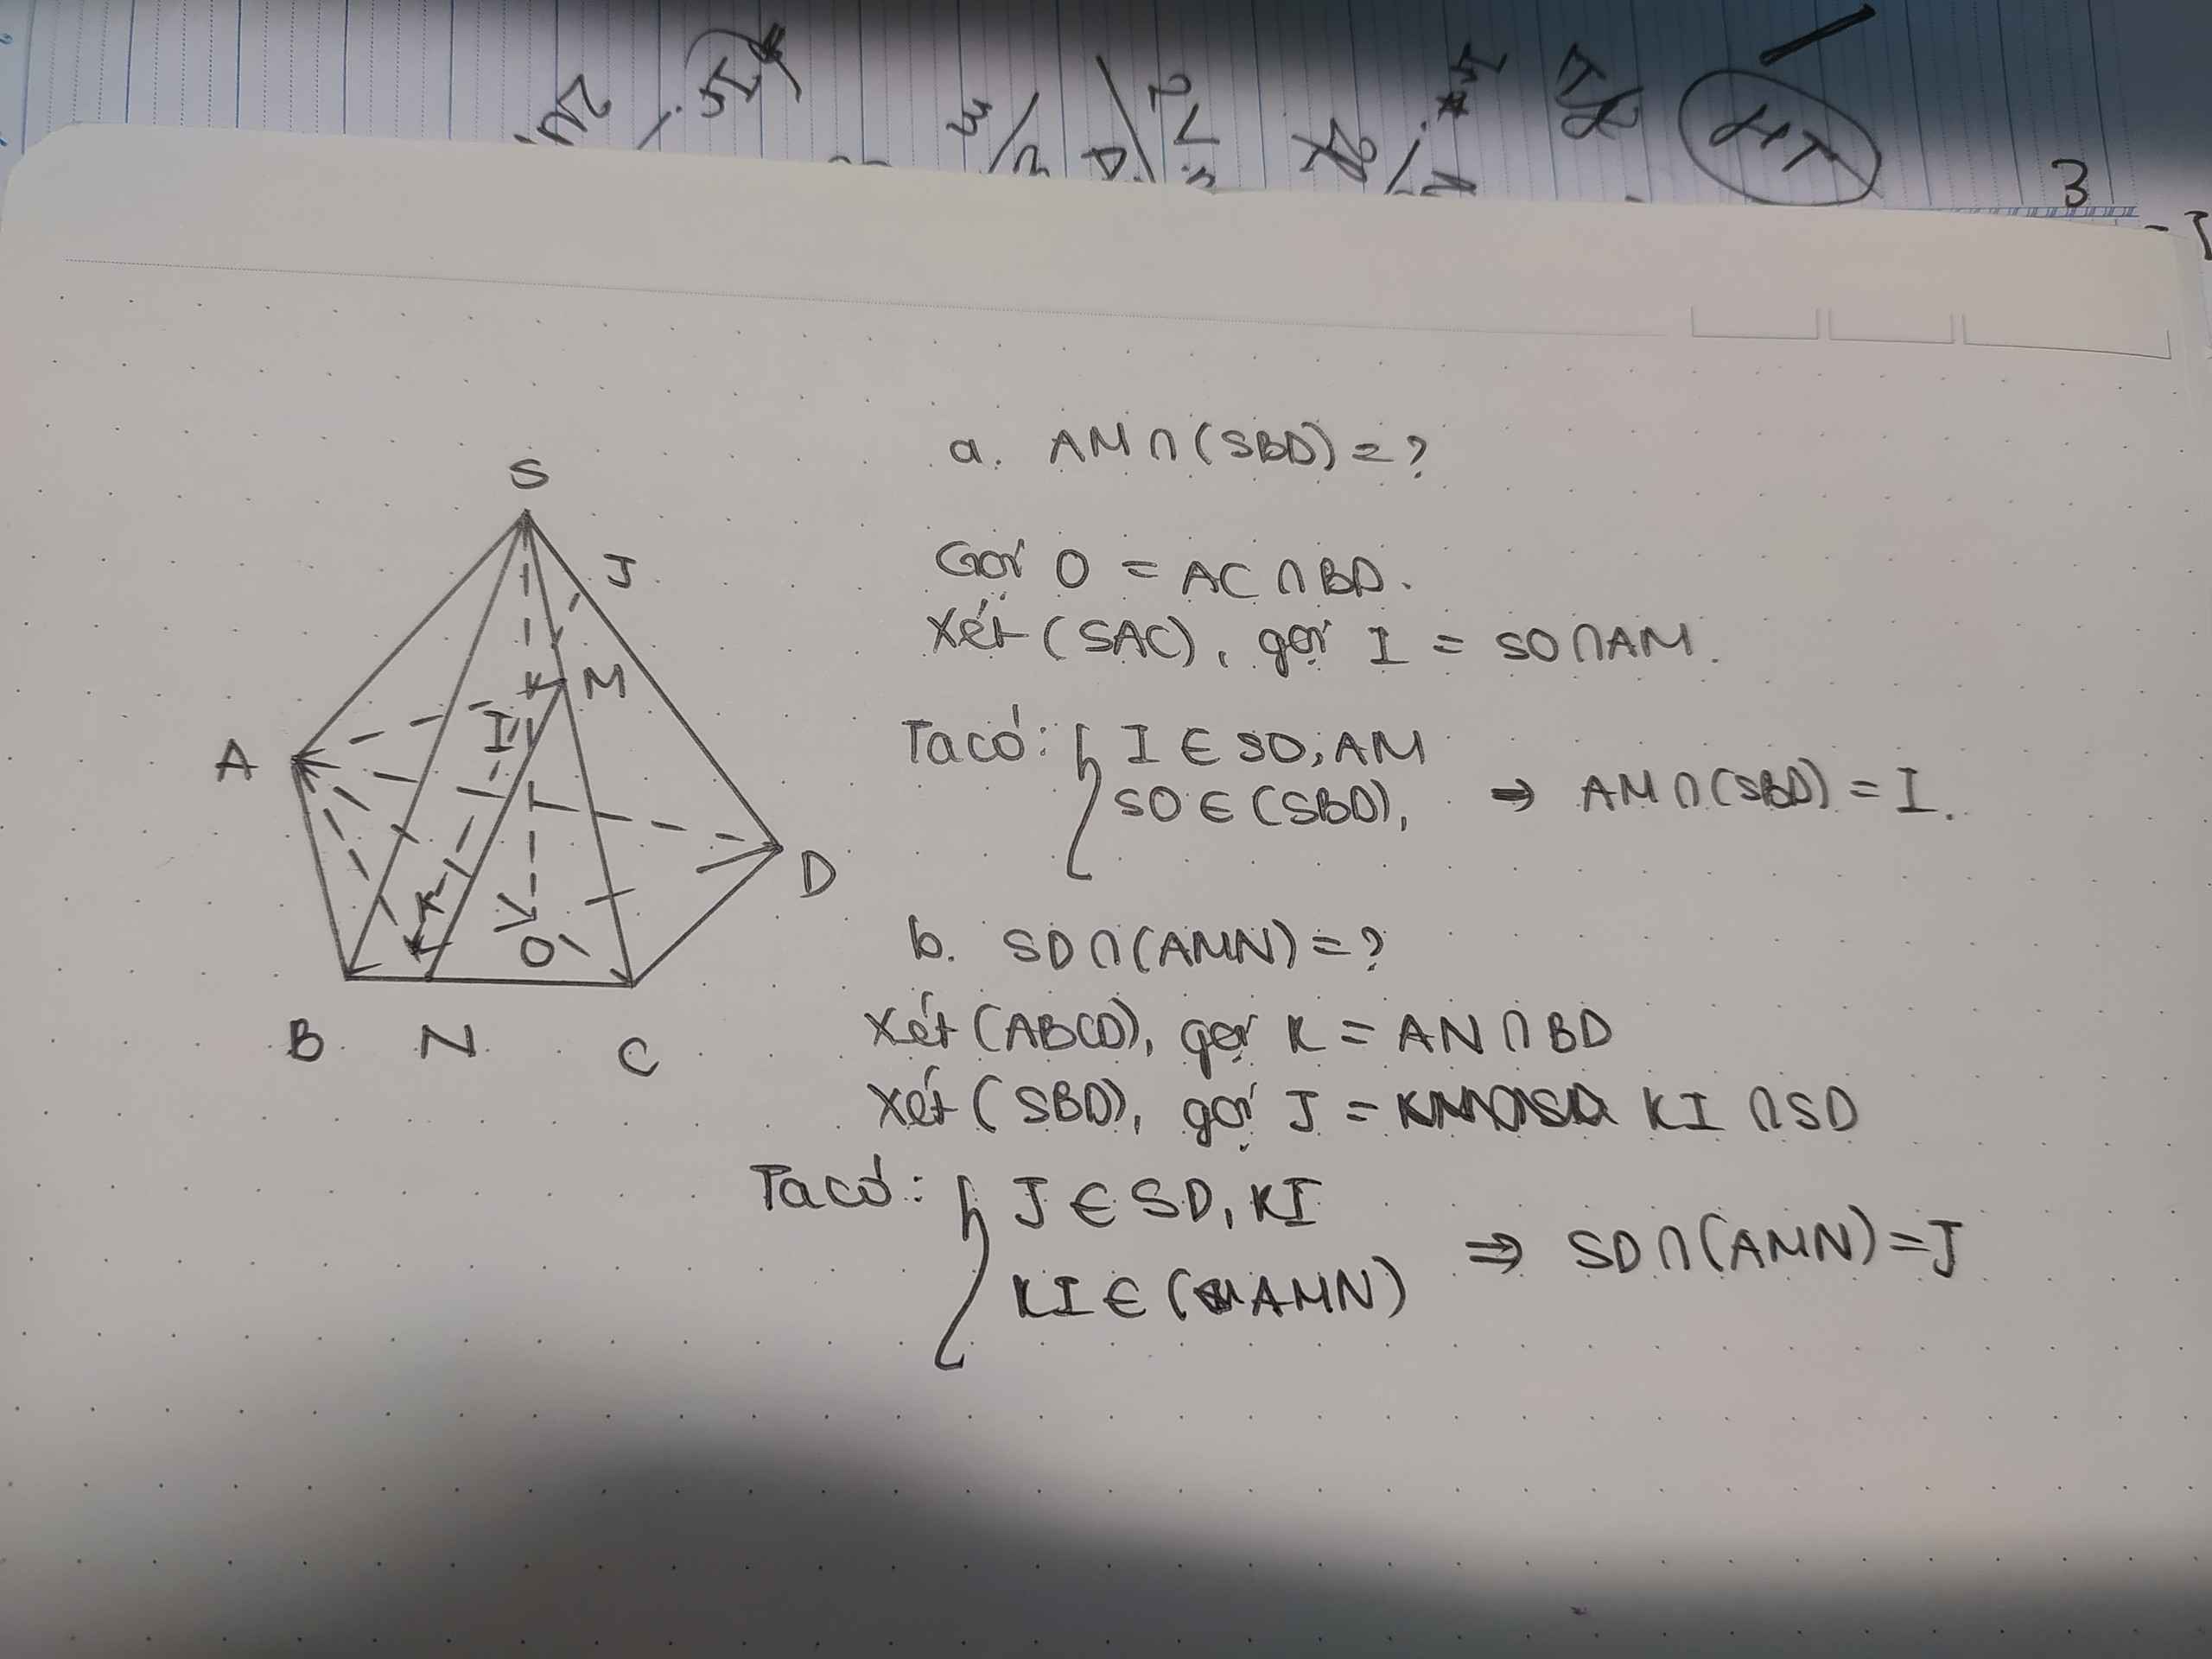 3
HT
S
J
M
I
A
D
K
O
B N C
a. AM ∩ (SBD) = ?
Gọi O = AC ∩ BD.
Xét (SAC), gọi I = SO ∩ AM.
Ta có: { I ∈ SO, AM
SO ∈ (SBD), ⇒ AM ∩ (SBD) = I.
b. SD ∩ (AMN) = ?
Xét (ABCD), gọi K = AN ∩ BD
Xét (SBD), gọi J = KI ∩ SD
Ta có: { J ∈ SD, KI
KI ∈ (AMN) ⇒ SD ∩ (AMN) = J